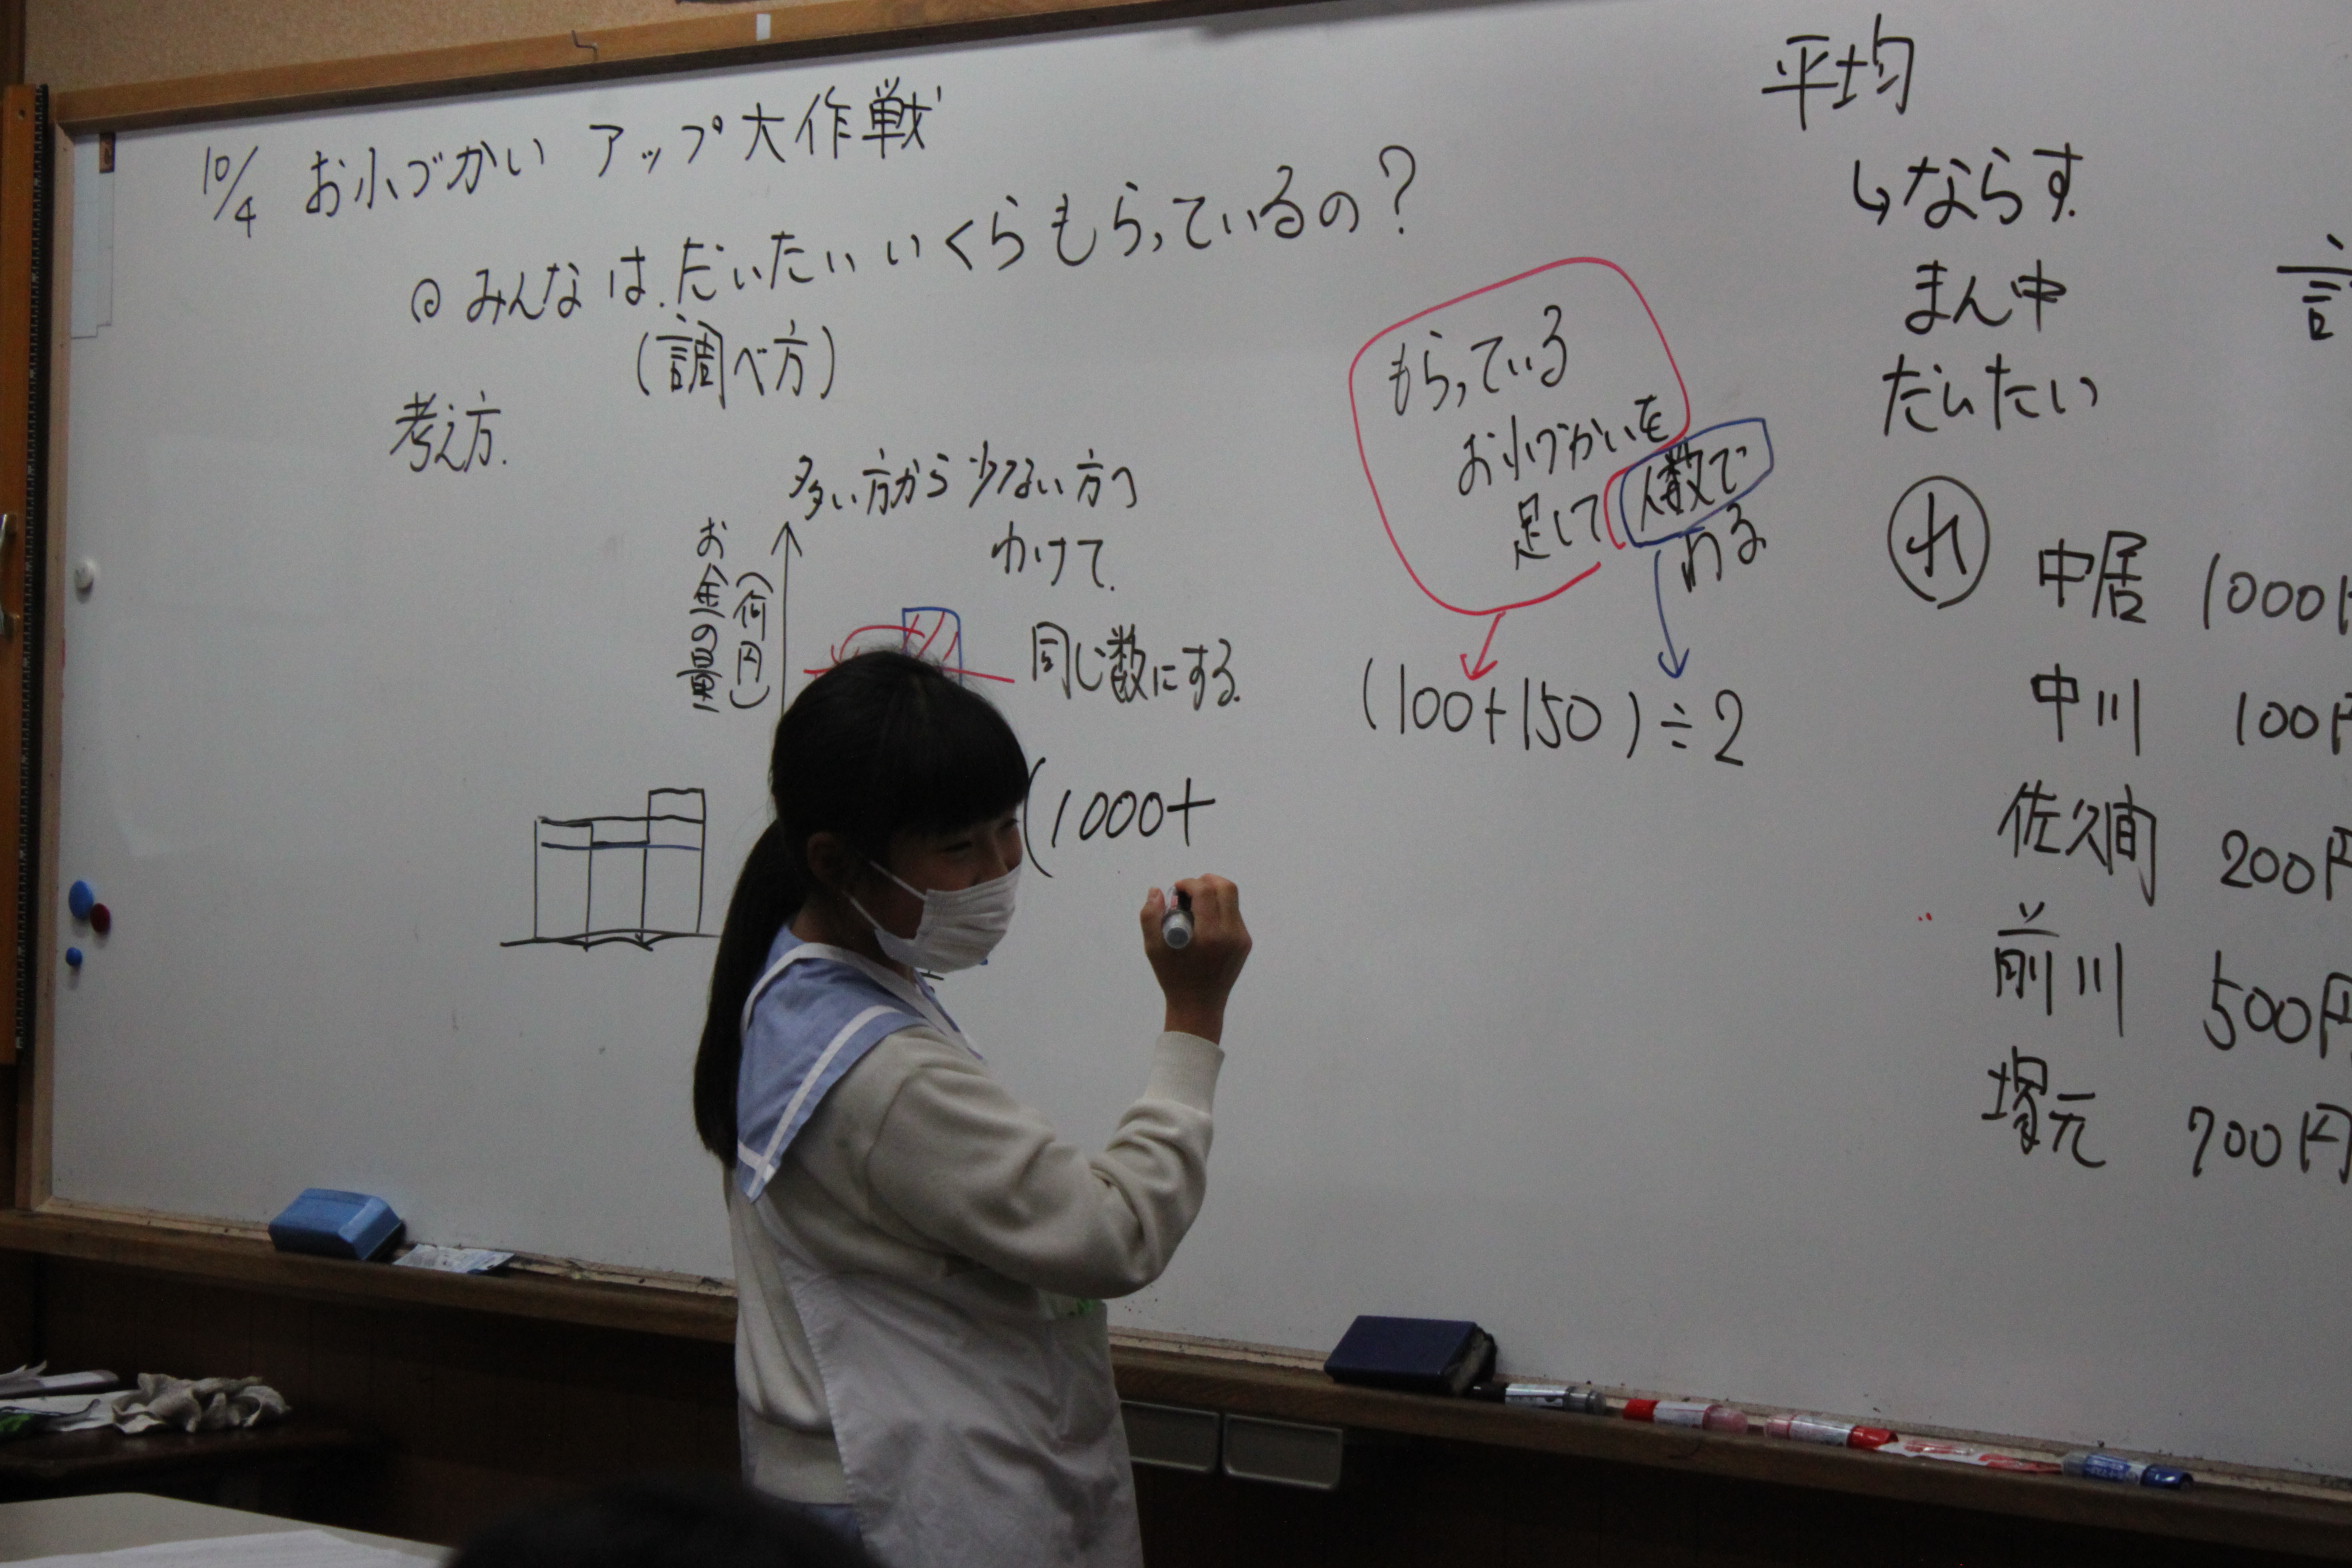 10/4 お小づかい アップ大作戦
◎ みんなは、だいたいいくらもらっているの?
(調べ方)
考え方.
多い方から少ない方へ
わけて.
同じ数にする.
お金の量
(何円)
(1000+
もらっている
お小づかいを
足して 人数で
わる
(100+150)÷2
平均
↳ならす.
まん中
だいたい
れ
中居 1000円
中川 100円
佐久間 200円
前川 500円
塚元 700円